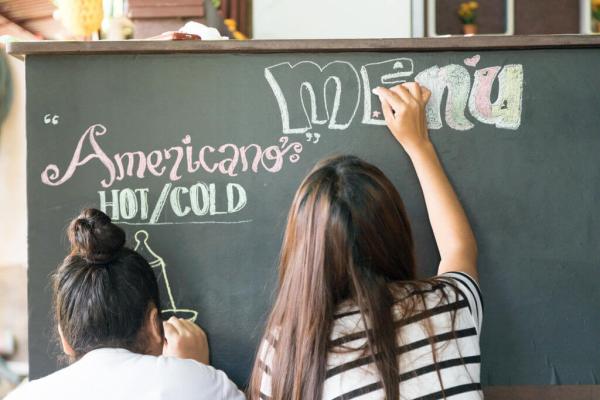 Menu
"Americano's"
HOT/COLD